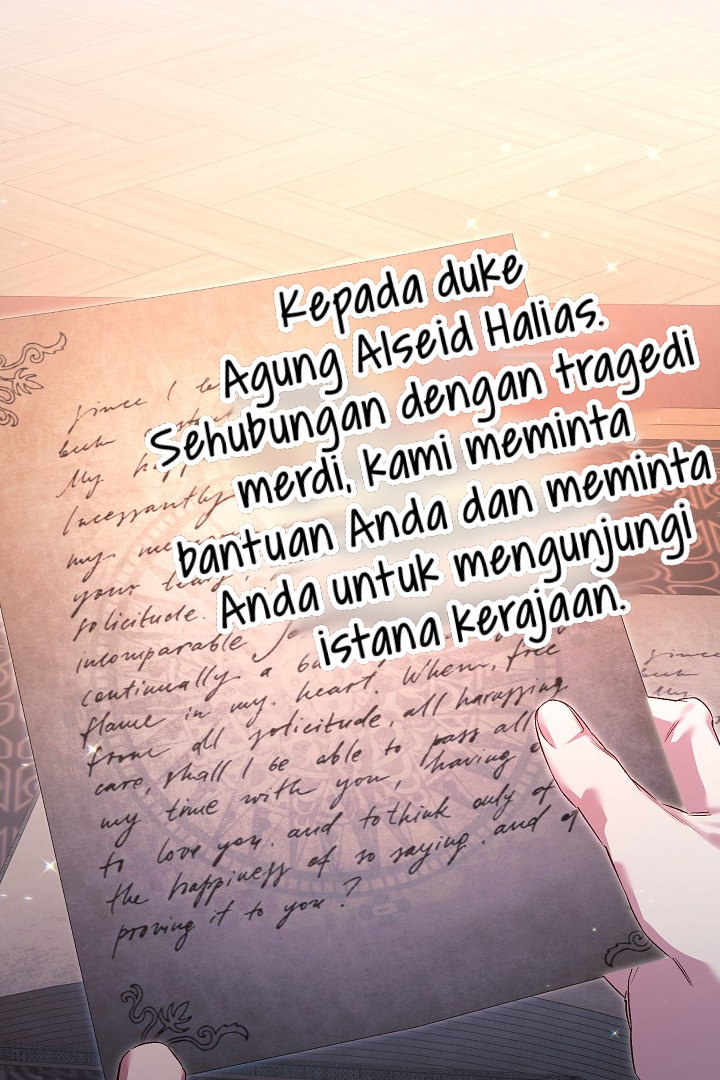 Kepada duke
Agung Alseid Halias.
Sehubungan dengan tragedi
merdi, kami meminta
bantuan Anda dan meminta
Anda untuk mengunjungi
istana kerajaan.
since I
My
Incessantly
my
your
solicitude.
incomparable
continually a
flame in my heart. When, free
from all solicitude, all harassing
care, shall I be able to pass all
my time with you, having
to love you. and to think only of
the happiness of so saying. and of
proving it to you?
since
My